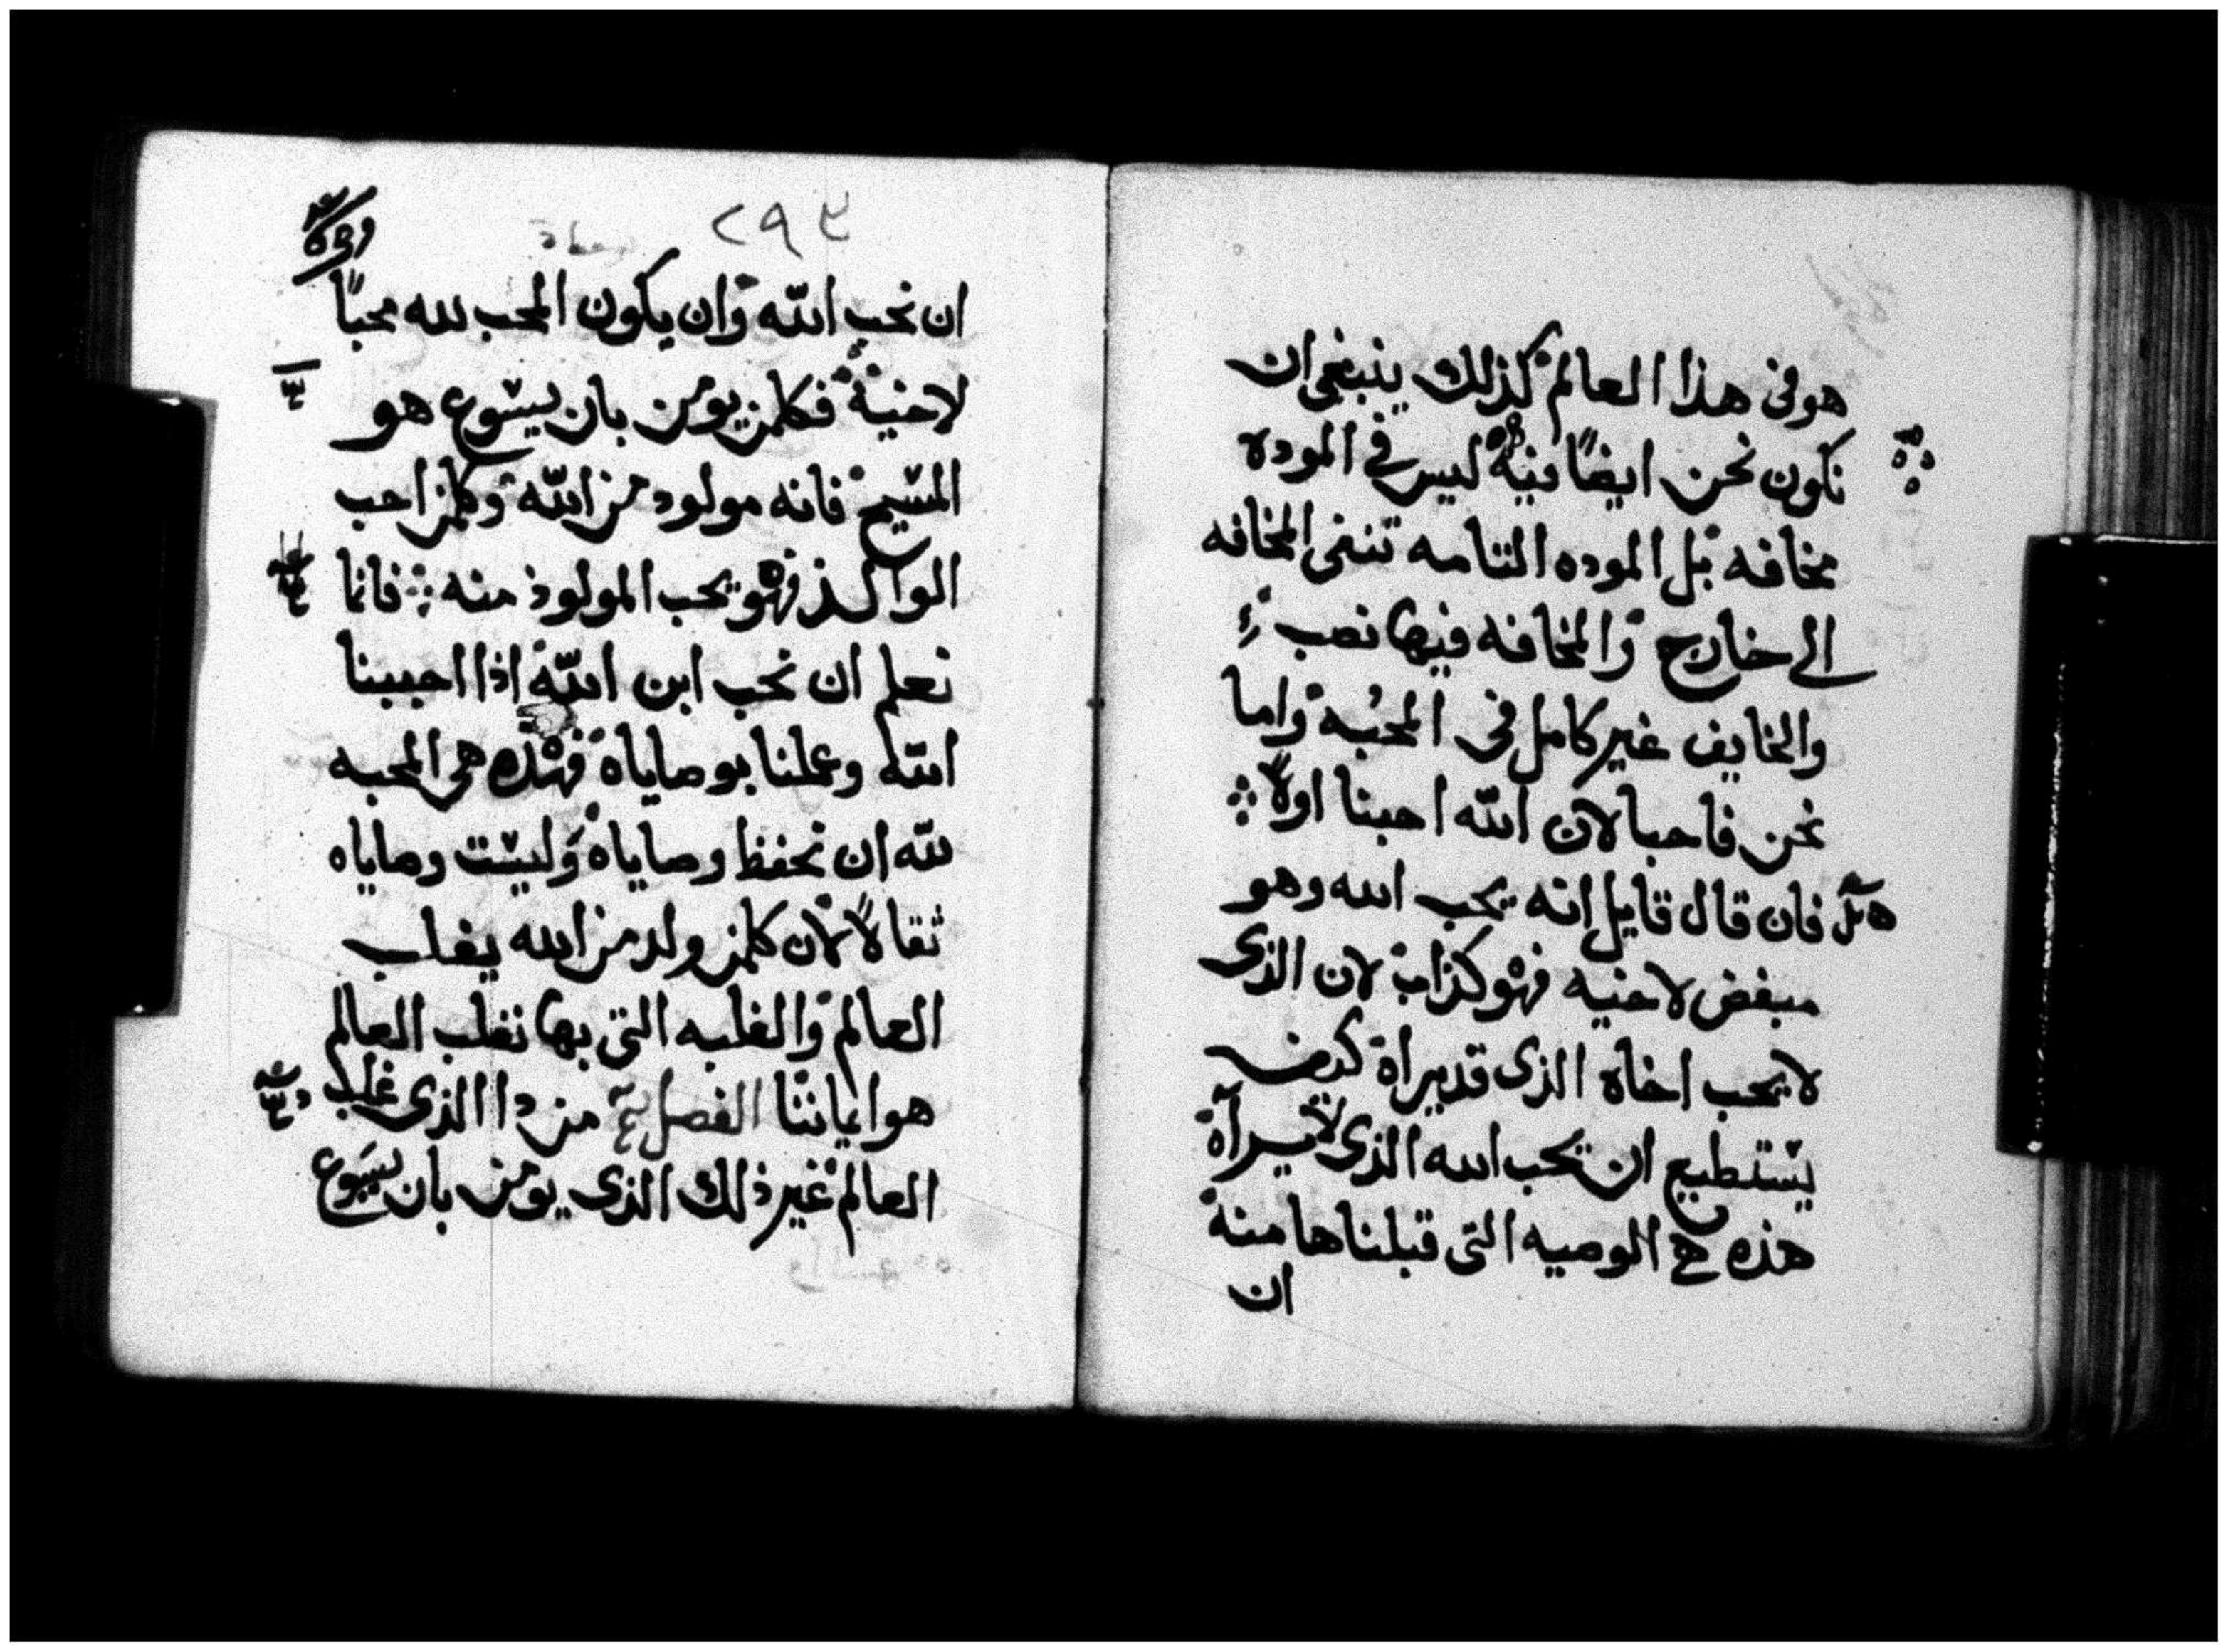 هو فى هذا العالم كذلك ينبغى ان
نكون نحن ايضًا فيه ليس في الموده
مخافه بل الموده التامه تنفى المخافه
الى خارج والمخافه فيها نصب
والخايف غير كامل فى المحبه واما
نحن فاحبا لان الله احبنا اولًا
فان قال قايل انه يحب الله وهو
مبغض لاخيه فهو كذاب لان الذى
لا يحب اخاه الذى قد يراه كيف
يستطيع ان يحب الله الذى لا يراه
هذه هي الوصيه التى قبلناها منه
ان
٢٩٣
ان نحب الله وان يكون المحب لله محبًا
لاخيه فكلمن يومن بان يسوع هو
المسيح فانه مولود من الله وكلمن احب
الوالد فهو يحب المولود منه فانما
نعلم ان نحب ابن الله اذا احببنا
الله وعملنا بوصاياه فهذه هى المحبه
لله ان نحفظ وصاياه وليست وصاياه
ثقالًا لان كلمن ولد من الله يغلب
العالم والغلبه التى بها نغلب العالم
هو ايماننا الفصل من دا الذى غلب
العالم غير ذلك الذى يومن بان يسوع